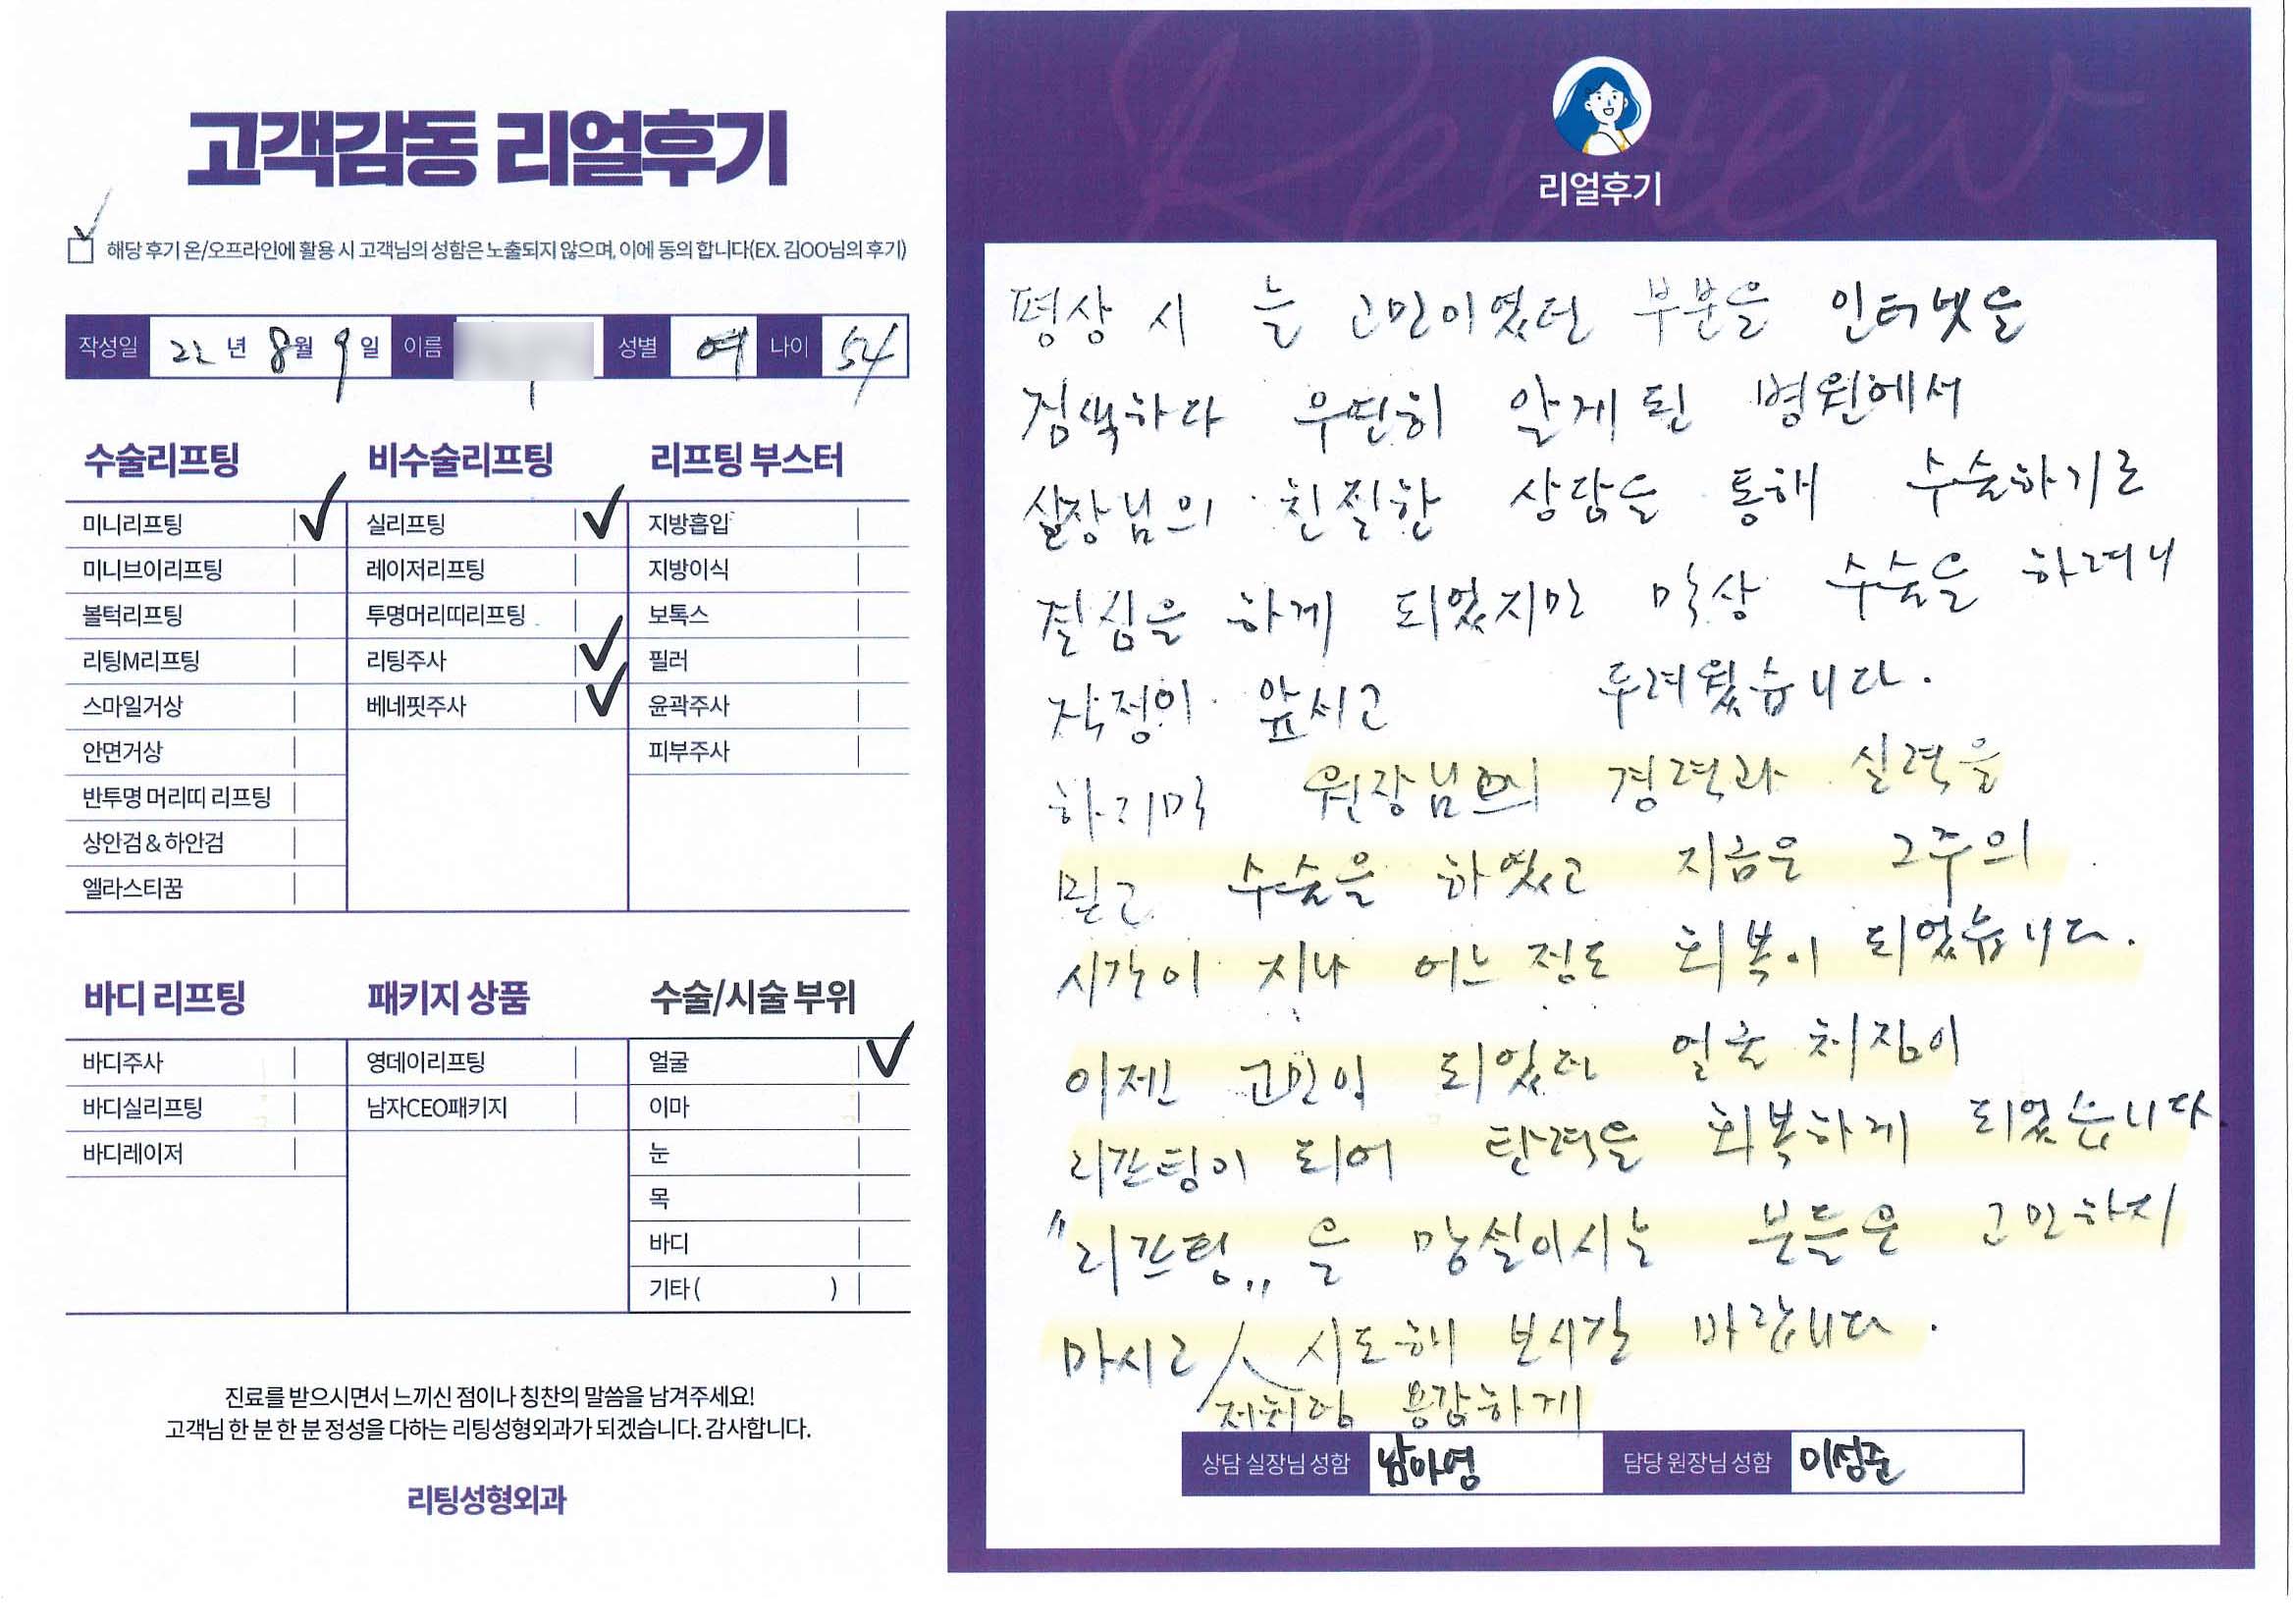 고객감동 리얼후기
해당 후기 온/오프라인에 활용 시 고객님의 성함은 노출되지 않으며, 이에 동의 합니다(EX. 김OO님의 후기)
작성일 22년 8월 9일 이름 성별 여 나이 54
수술리프팅
미니리프팅
미니브이리프팅
볼턱리프팅
리팅M리프팅
스마일거상
안면거상
반투명 머리띠 리프팅
상안검 & 하안검
엘라스티꿈
비수술리프팅
실리프팅
레이저리프팅
투명머리띠리프팅
리팅주사
베네핏주사
리프팅 부스터
지방흡입
지방이식
보톡스
필러
윤곽주사
피부주사
바디 리프팅
바디주사
바디실리프팅
바디레이저
패키지 상품
영데이리프팅
남자CEO패키지
수술/시술 부위
얼굴
이마
눈
목
바디
기타 ( )
진료를 받으시면서 느끼신 점이나 칭찬의 말씀을 남겨주세요!
고객님 한 분 한 분 정성을 다하는 리팅성형외과가 되겠습니다. 감사합니다.
리팅성형외과
Review
리얼후기
평상 시 늘 고민이였던 부분을 인터넷을
검색하다 우연히 알게 된 병원에서
실장님의 친절한 상담을 통해 수술하기로
결심을 하게 되었지만 막상 수술을 하려니
작정이 앞서고 두려웠습니다.
하지만 원장님의 경력과 실력을
믿고 수술을 하였고 지금은 2주의
시간이 지나 어느정도 회복이 되었습니다.
이젠 고민이 되었던 얼굴 처짐이
리프팅이 되어 탄력을 회복하게 되었습니다
"리프팅" 을 망설이시는 분들은 고민하지
마시고 시도해 보시길 바랍니다.
저처럼 용감하게
상담 실장님 성함 남아영 담당 원장님 성함 이성준